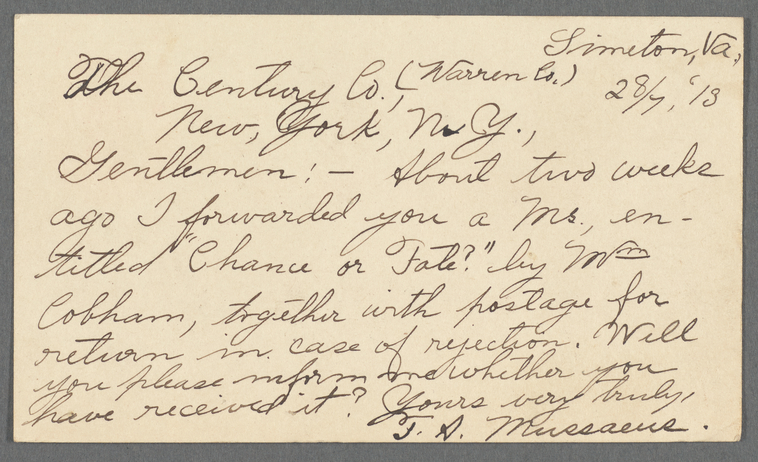 Limeton, Va.,
The Century Co., (Warren Co.)
28/7, '13
New, York, N. Y.,
Gentlemen: - About two weeks
ago I forwarded you a Ms., en-
titled "Chance or Fate?" by Wm
Cobham, together with postage for
return in case of rejection. Will
you please inform me whether you
have received it? Yours very truly,
F. A. Mussaeus.